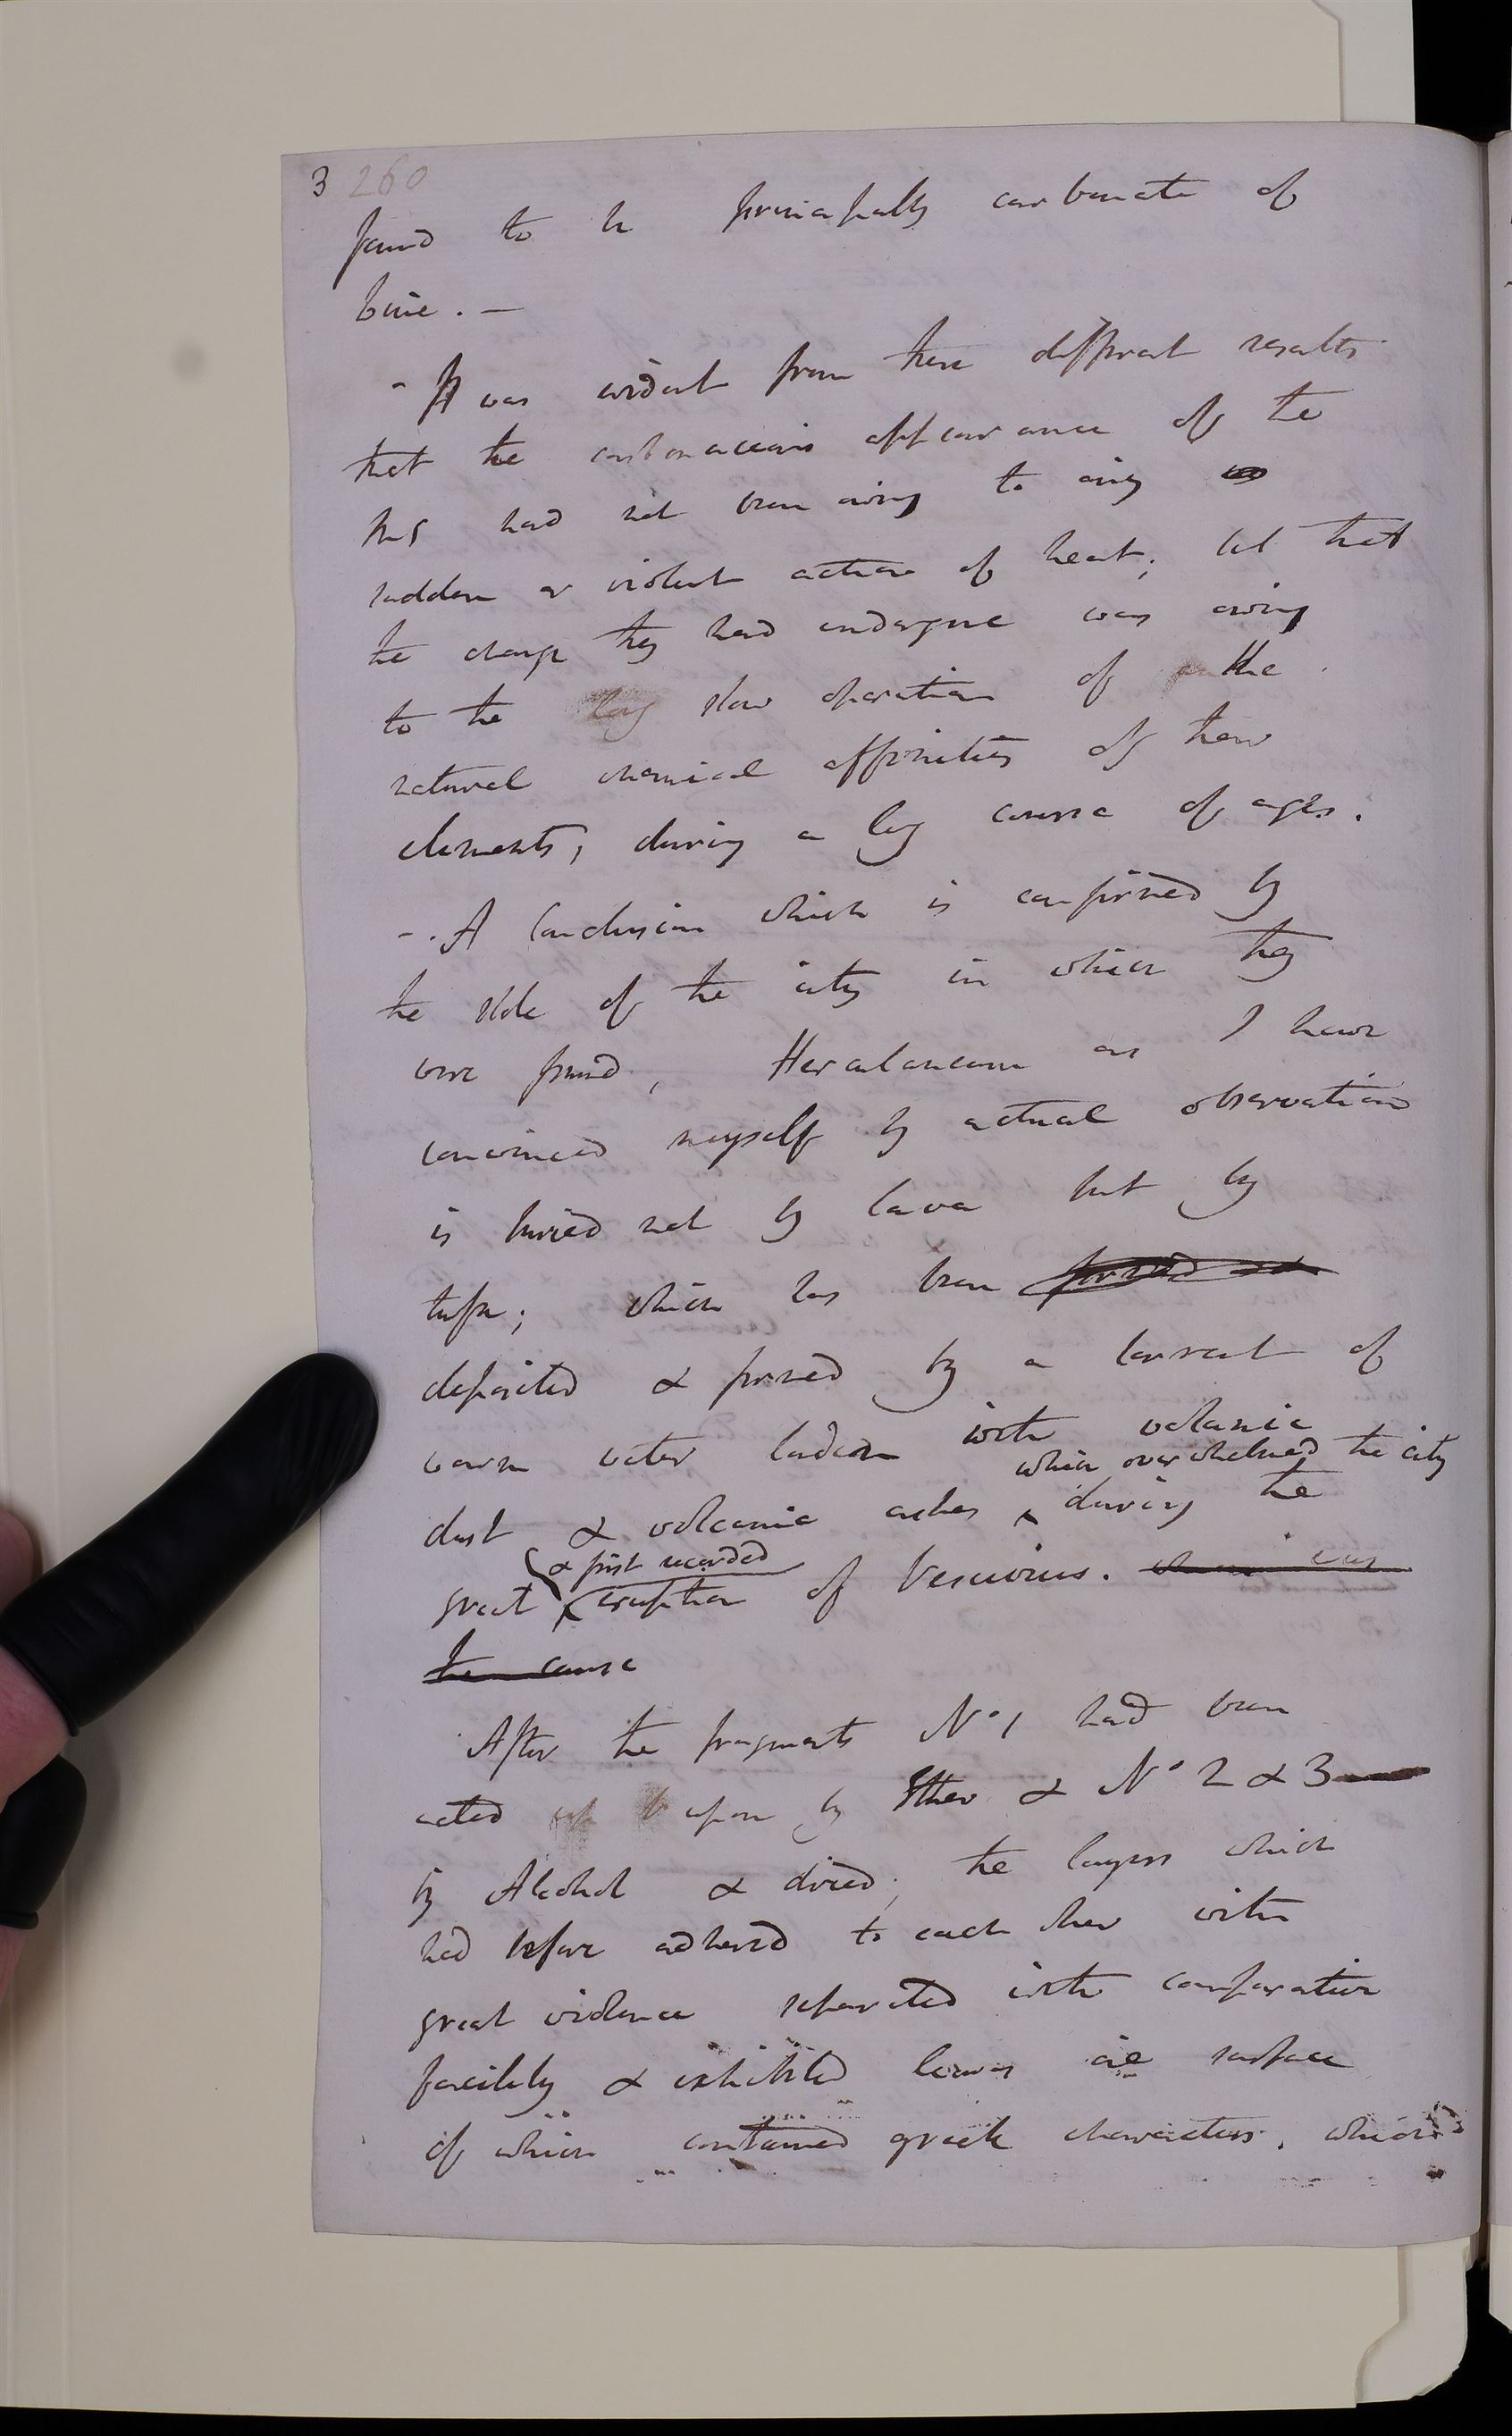 3 260
found to be principally carbonate of
lime. —
- It was evident from these different results
that the carbonaceous appearance of the
MS had not been owing to any
sudden or violent action of heat; but that
the change they had undergone was owing
to the long slow operation of the
natural chemical affinities of their
elements, during a long course of ages.
-. A conclusion which is confirmed by
the state of the city in which they
were found, Herculaneum as I have
convinced myself by actual observation
is buried not by lava but by
tufa; which has been formed and
deposited & formed by a torrent of
warm water laden with volcanic
which overwhelmed the city
dust & volcanic ashes during the
& first recorded
great eruption of Vesuvius.
the cause
After the fragments No 1 had been
acted upon by Ether & No 2 & 3
by Alcohol & dried; the layers which
had before adhered to each other with
great violence separated with comparative
facility & exhibited leaves one surface
of which contained greek characters, which